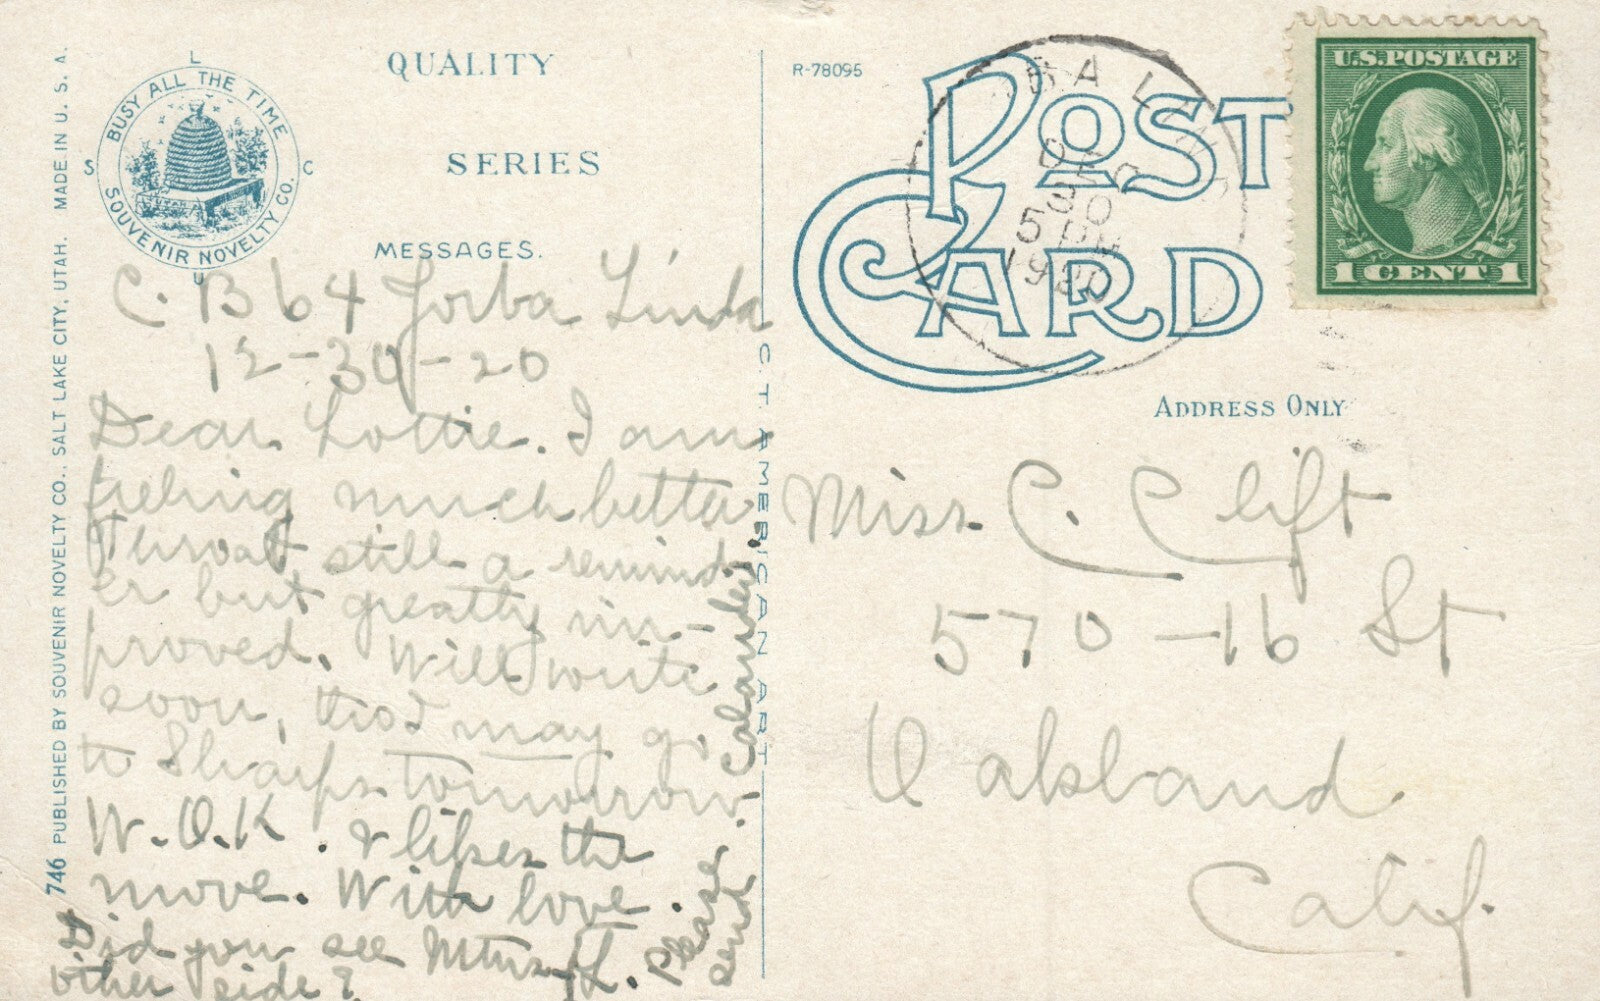 QUALITY
SERIES
MESSAGES.
L
S C
U
BUSY ALL THE TIME
SOUVENIR NOVELTY CO.
746 PUBLISHED BY SOUVENIR NOVELTY CO., SALT LAKE CITY, UTAH. MADE IN U. S. A.
C. B 64 Yorba Linda
12-30-20
Dear Lottie. I am
feeling much better
Throat still a remind-
er but greatly im-
proved. Will write
soon, tho I may go
to Sharps tomorrow.
W. O.K. & likes the
move. With love.
Did you see Mtns
other side?
Please send calander.
C.T. AMERICAN ART
R-78095
POST
CARD
DEC
30
5 PM
1920
U.S. POSTAGE
1 CENT 1
ADDRESS ONLY
Miss C. Clift
570-16 St
Oakland
Calif.